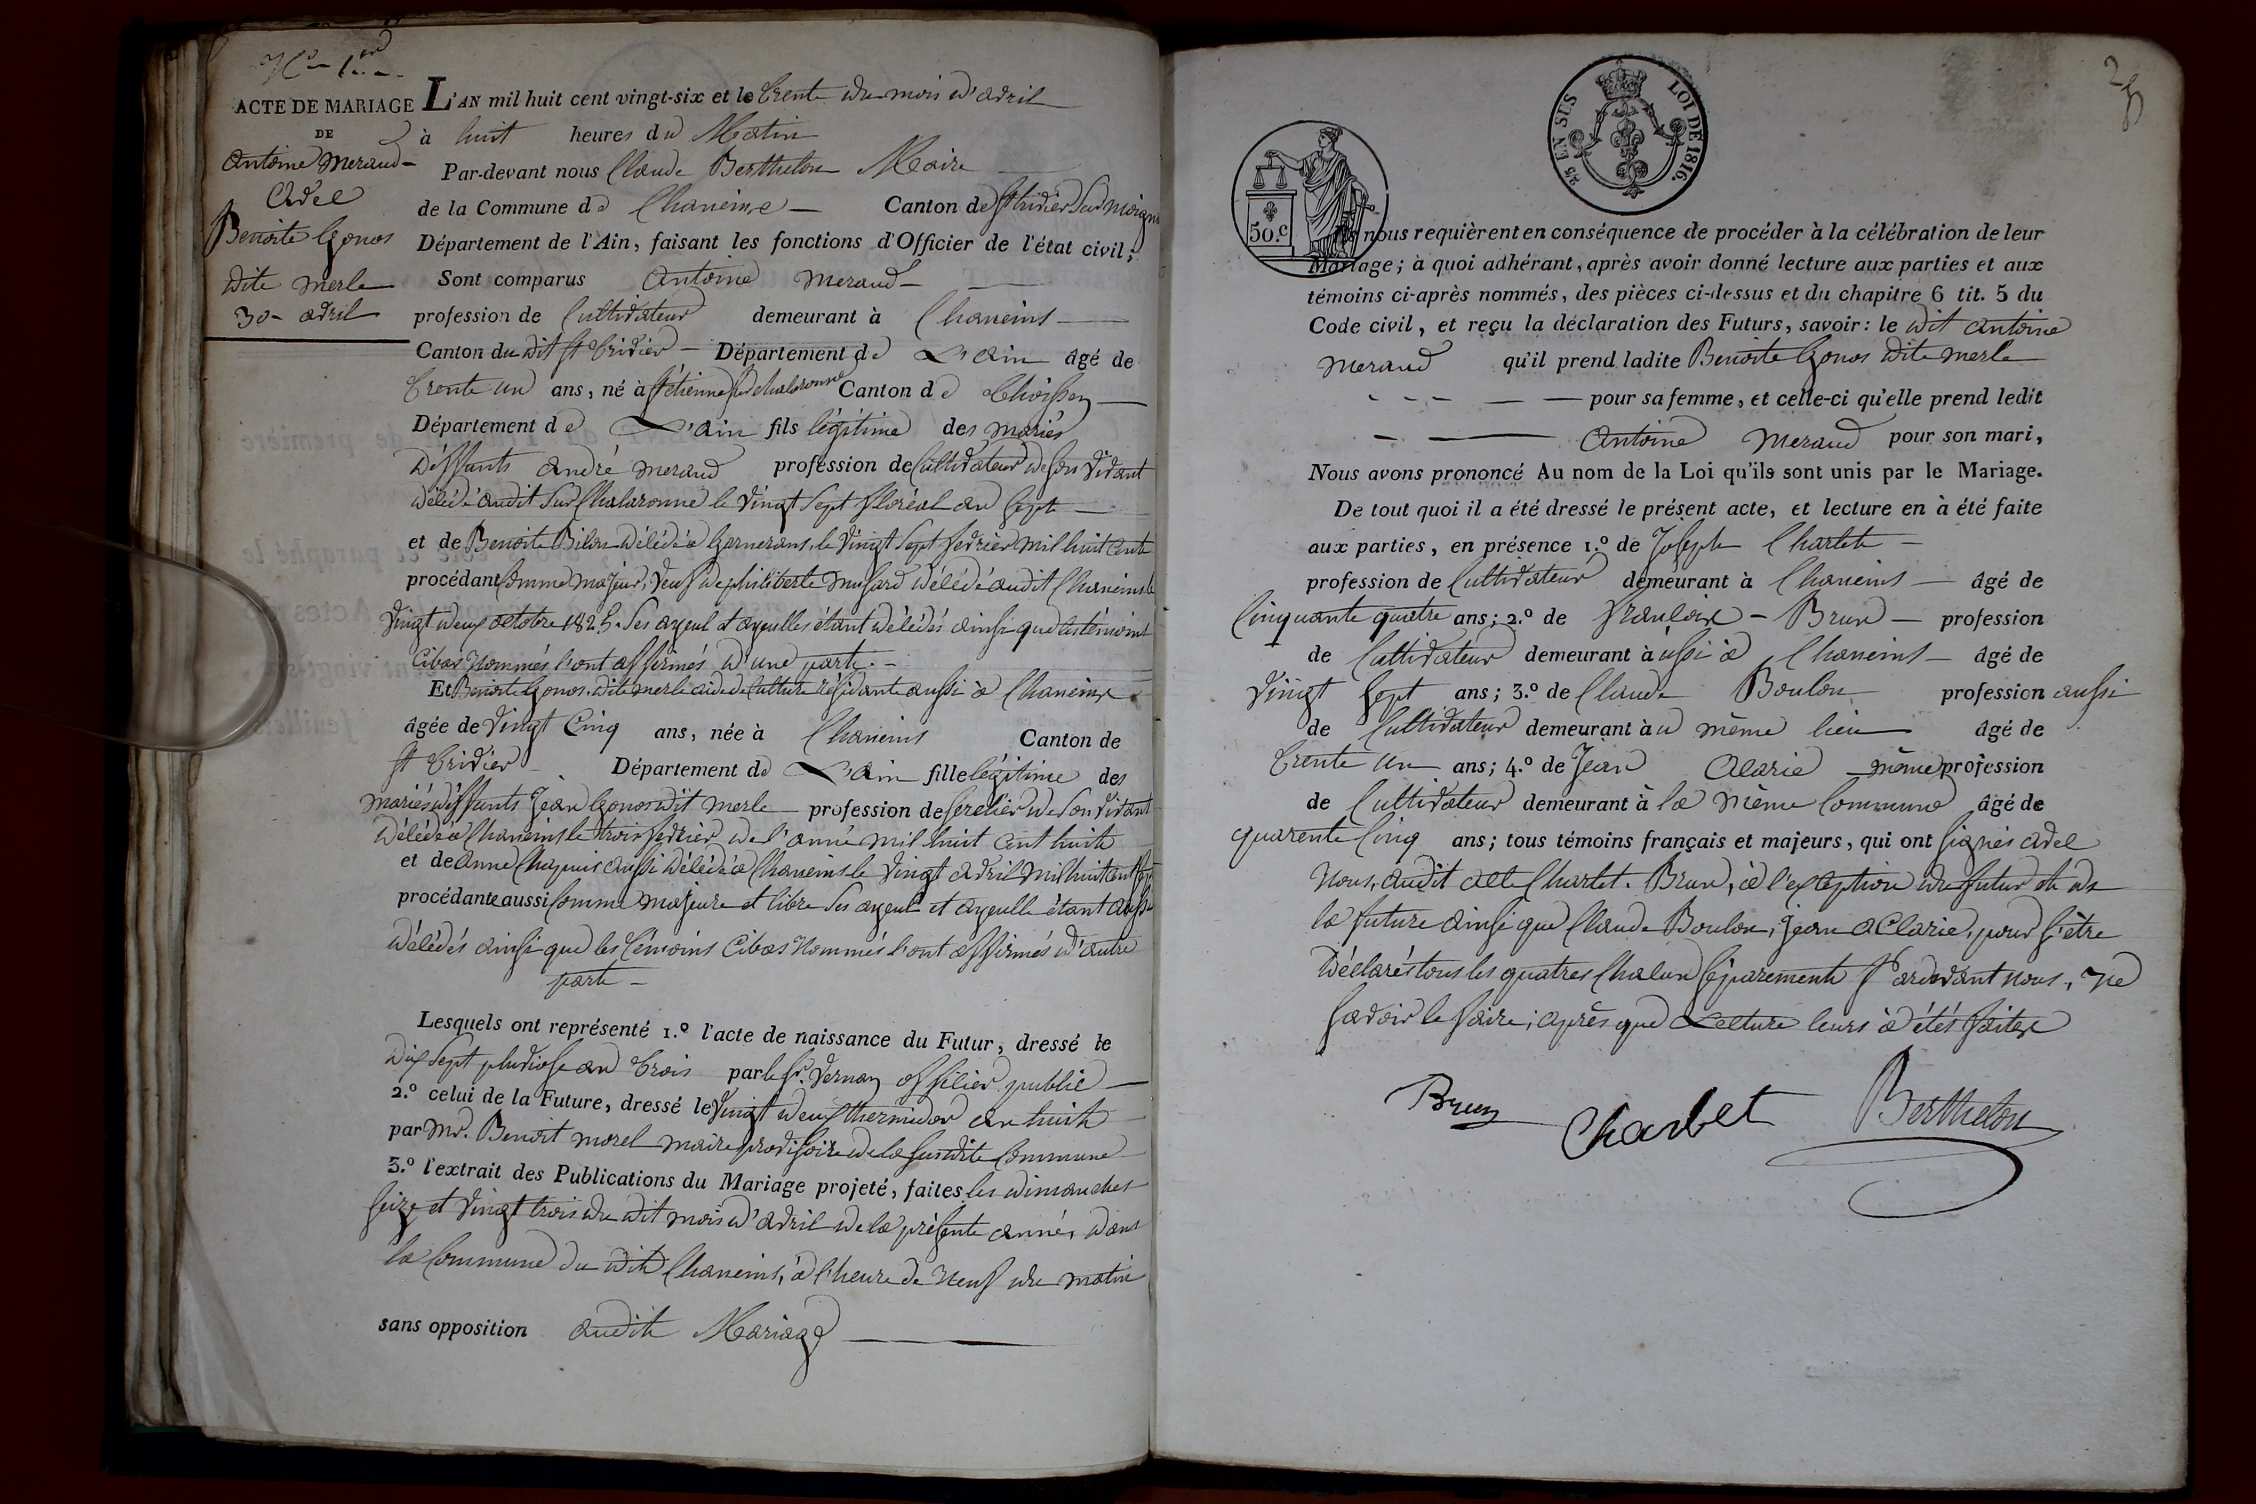 No 1er
ACTE DE MARIAGE
DE
Antoine Meraud
Avec
Benoite Gonos
dite merle
30 avril
L'AN mil huit cent vingt-six et le trente du mois d'avril
à huit heures du Matin
Par-devant nous Claude Berthelon Maire
de la Commune de Chaneins Canton de St trivier Sur moignans
Département de l'Ain, faisant les fonctions d'Officier de l'état civil;
Sont comparus Antoine Meraud
profession de Cultivateur demeurant à Chaneins
Canton du dit St trivier Département de L'ain âgé de
trente un ans, né à St étienne Sur chalaronne Canton de thoissey
Département de L'ain fils légitime des mariés
déffunts andré meraud profession de Cultivateur de Son vivant
décédé audit Sur Chalaronne le vingt Sept floréal an Sept
et de Benoite Bilon décédée à garnerans, le vingt Sept fevrier mil huit cent
procédant Comme majeur, veuf de philiberte musard décédé audit Chaneins le
vingt deux octobre 1825. Ses ayeul et ayeulles étant décédés ainsi que les témoins
cibas Nommés l'ont affirmés d'une part.
Et Benoite Gonos dite merle aide de Culture résidante aussi à Chaneins
âgée de vingt Cinq ans, née à Chaneins Canton de
St trivier Département de L'ain fille légitime des
mariés déffunts Jean Gonos dit merle profession de Serclier de Son vivant
décédé à Chaneins le trois fevrier de l'anné mil huit cent huit
et de anne Chapuis aussi décédée à Chaneins le vingt avril mil huit cent Sept
procédante aussi Comme majeure et libre Ses ayeuls et ayeulle étant aussi
décédés ainsi que les témoins Cibas Nommés l'ont affirmés d'autre
part
Lesquels ont représenté 1.º l'acte de naissance du Futur, dressé le
dix Sept pluviose an trois par le Sr. Vernay officier public
2.º celui de la Future, dressé le vingt deux thermidor an huit
par Mr. Benoit morel maire provisoire de la Susdite Commune
3.º l'extrait des Publications du Mariage projeté, faites les dimanches
Seize et vingt trois du dit mois d'avril de la présente année, dans
la Commune du dit Chaneins, à l'heure de neuf du matin
sans opposition audit Mariage
25
25 EN SUS
LOI DE 1816.
50.c
Ils nous requièrent en conséquence de procéder à la célébration de leur
Mariage; à quoi adhérant, après avoir donné lecture aux parties et aux
témoins ci-après nommés, des pièces ci-dessus et du chapitre 6 tit. 5 du
Code civil, et reçu la déclaration des Futurs, savoir: le dit antoine
meraud qu'il prend ladite Benoite Gonos dite merle
pour sa femme, et celle-ci qu'elle prend ledit
Antoine Meraud pour son mari,
Nous avons prononcé Au nom de la Loi qu'ils sont unis par le Mariage.
De tout quoi il a été dressé le présent acte, et lecture en à été faite
aux parties, en présence 1.º de Joseph Charlet
profession de Cultivateur demeurant à Chaneins âgé de
Cinquante quatre ans; 2.º de françois Brun profession
de Cultivateur demeurant à ussi à Chaneins âgé de
vingt Sept ans; 3.º de Claude Boulon profession aussi
de Cultivateur demeurant à u même lieu âgé de
trente un ans; 4.º de Jean Clarie même profession
de Cultivateur demeurant à la même Commune âgé de
quarente Cinq ans; tous témoins français et majeurs, qui ont Signés avec
Nous, audit acte Charlet. Brun, à l'exception du futur et de
la future ainsi que Claude Boulon, Jean Clarie, pour S'être
déclarés tous les quatres Chacun Séparement Pardevant nous, ne
Savoir le faire; après que Lecture leurs à étés faitse
Brun
Charlet
Berthelon